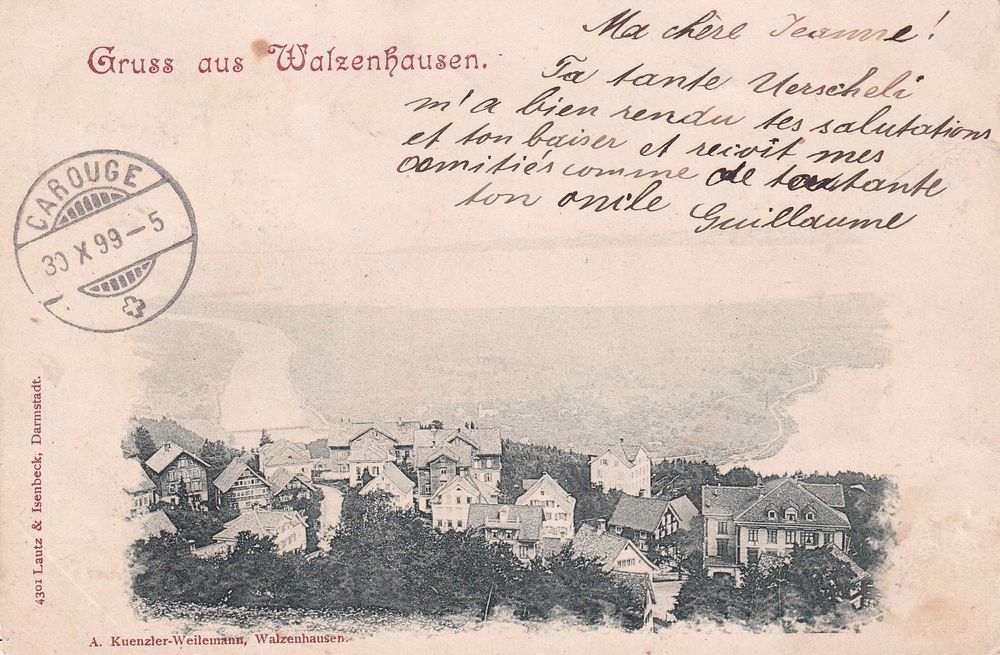 Gruss aus Walzenhausen.
Ma chère Jeanne!
Ta tante Uerscheli
m'a bien rendu tes salutations
et ton baiser et reçoit mes
amitiés comme de ta tante
ton oncle Guillaume
CAROUGE
30 X 99 – 5
4301 Lautz & Isenbeck, Darmstadt.
A. Kuenzler-Weilemann, Walzenhausen.